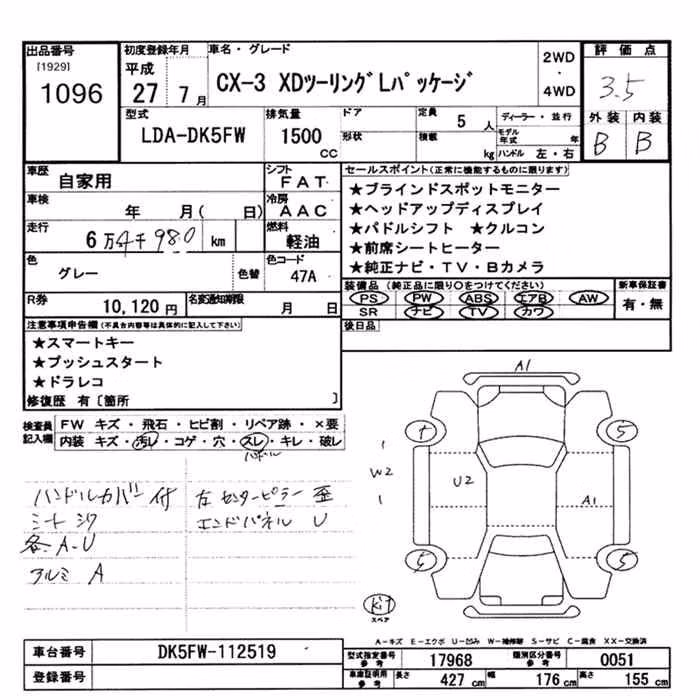 出品番号
[1929]
1096
初度登録年月
平成
27 7 月
車名・グレード
CX-3 XDツーリングLパッケージ
2WD
・
4WD
評価点
3.5
外装 内装
B B
型式
LDA-DK5FW
排気量
1500
CC
ドア
形状
定員
5 人
積載
kg
ディーラー・並行
モデル年式 年
ハンドル 左・右
車歴
自家用
シフト
FAT
車検
年 月( 日)
冷房
AAC
走行
6万4千980 km
燃料
軽油
色
グレー
色替
色コード
47A
R券
10,120 円
名変通知期限
月 日
セールスポイント(正常に機能するものに限ります)
★ブラインドスポットモニター
★ヘッドアップディスプレイ
★パドルシフト ★クルコン
★前席シートヒーター
★純正ナビ・TV・Bカメラ
装備品(純正品に限り○をつけてください)
PS PW ABS エアB AW
SR ナビ TV カワ
新車保証書
有・無
後日品
注意事項申告欄(不具合内容等は具体的に記入して下さい)
★スマートキー
★プッシュスタート
★ドラレコ
修復歴 有〔箇所 〕
検査員記入欄
FW キズ・飛石・ヒビ割・リペア跡・×要
内装 キズ・汚レ・コゲ・穴・スレ・キレ・破レ
ハンドルカバー付
シート シワ
各A-U
アルミ A
左センターピラー歪
エンドパネル U
A1
5
W2
U2
A1
5
5
Kit
スペア
A-キズ E-エクボ U-凹み W-補修跡 S-サビ C-腐食 XX-交換済
車台番号
DK5FW-112519
登録番号
型式指定番号
参考
17968
類別区分番号
参考
0051
車庫証明用
参考
長さ
427 cm
幅
176 cm
高さ
155 cm